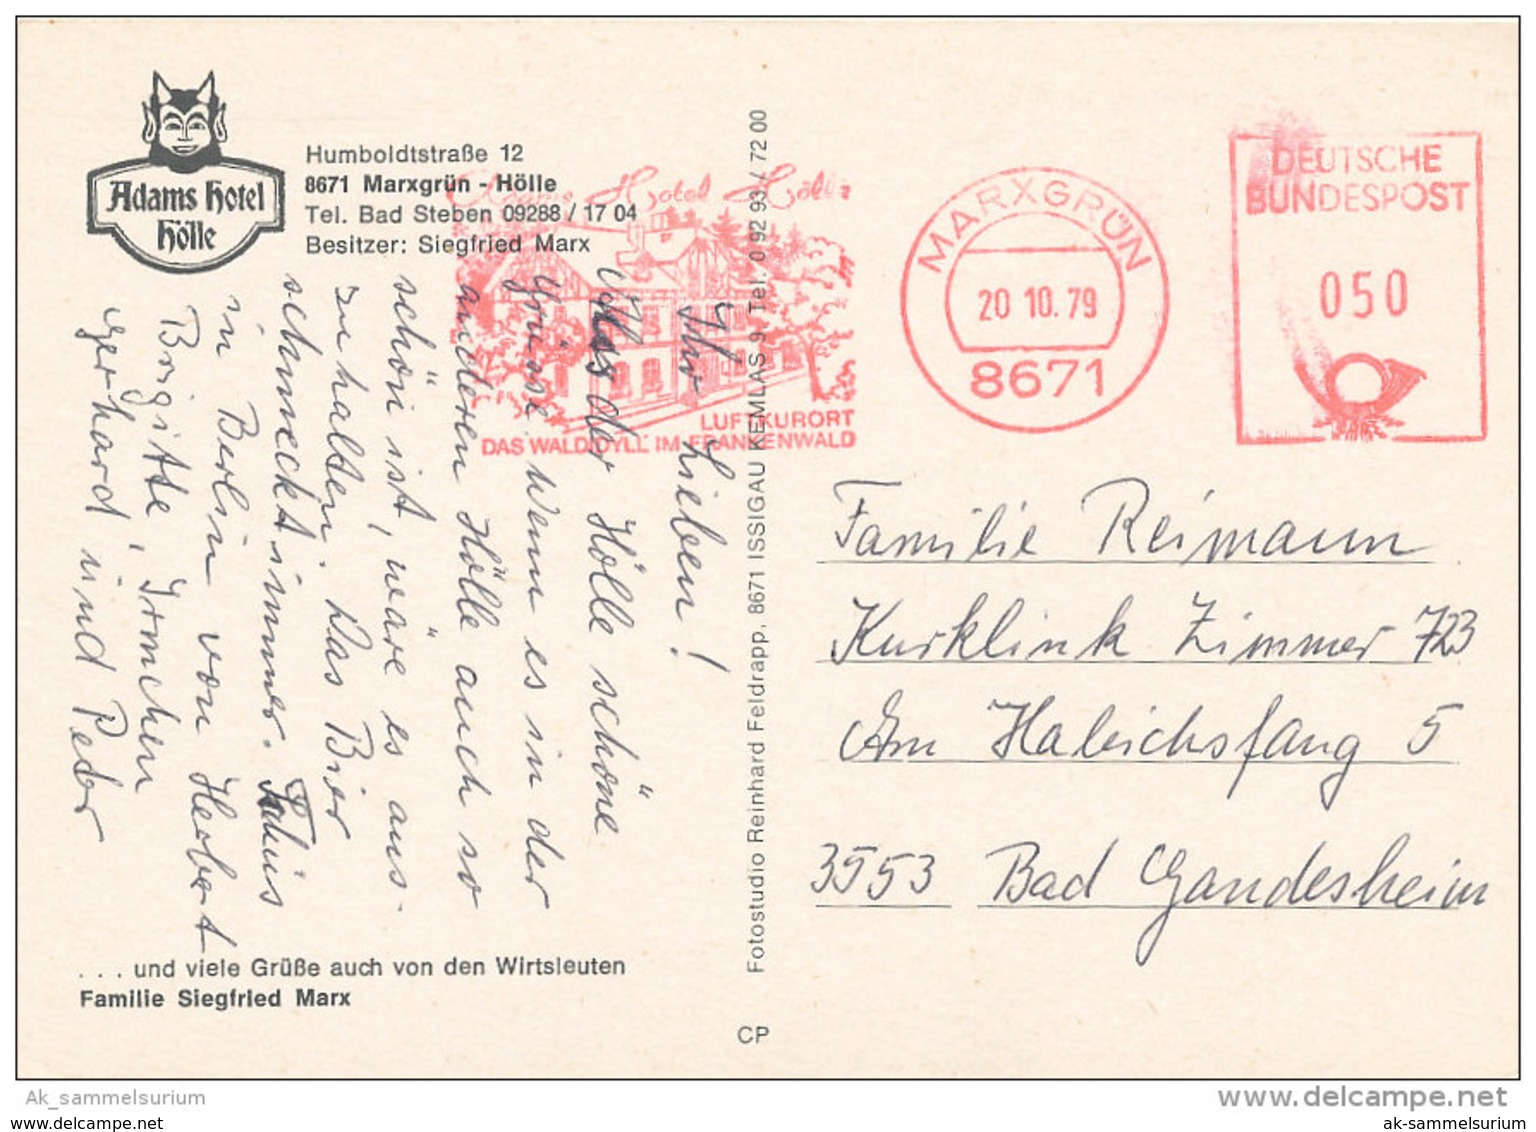 Adams Hotel
Hölle
Humboldtstraße 12
8671 Marxgrün - Hölle
Tel. Bad Steben 09288 / 17 04
Besitzer: Siegfried Marx
Adams Hotel Hölle
LUFTKURORT
DAS WALDIDYLL IM FRANKENWALD
MARXGRÜN
20 10. 79
8671
DEUTSCHE
BUNDESPOST
050
Ihr Lieben!
der Hölle schöne
Grüsse. Wenn es in der
anderen Hölle auch so
schön ist, wäre es aus-
zuhalten. Das Bier
schmeckt immer.
in Berlin von Herbert
Brigitte, Irmchen
Gerhard und Peter
. . . und viele Grüße auch von den Wirtsleuten
Familie Siegfried Marx
Fotostudio Reinhard Feldrapp, 8671 ISSIGAU KEMLAS 9, Tel. 0 92 93 / 72 00
CP
Familie Reimann
Kurklinik Zimmer 723
Am
5
3553 Bad Gandesheim
Ak_sammelsurium
www.delcampe.net
www.delcampe.net
ak-sammelsurium